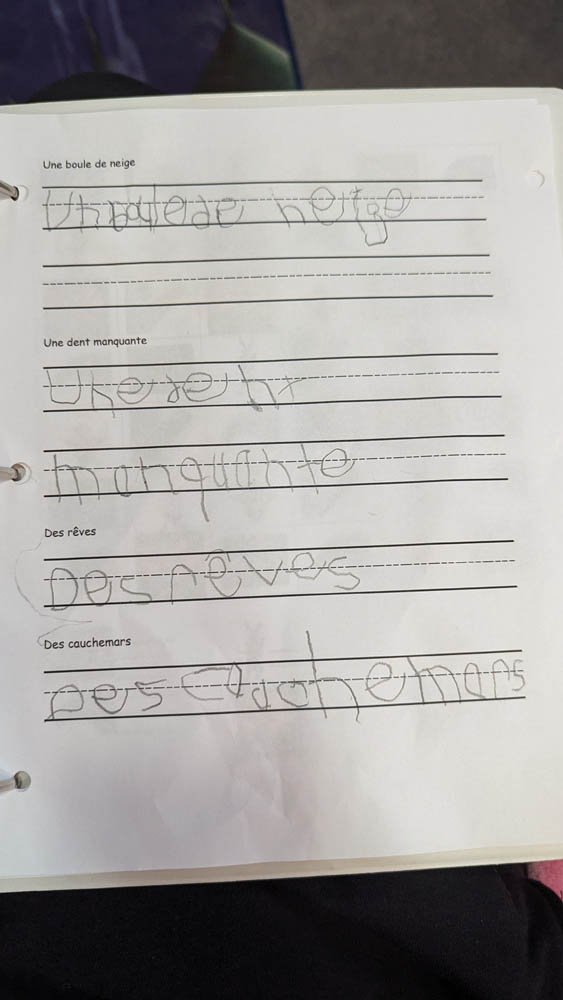 Une boule de neige
neige
Une dent manquante
Une dent
manquante
Des rêves
Des rêves
Des cauchemars
Des cauchemars